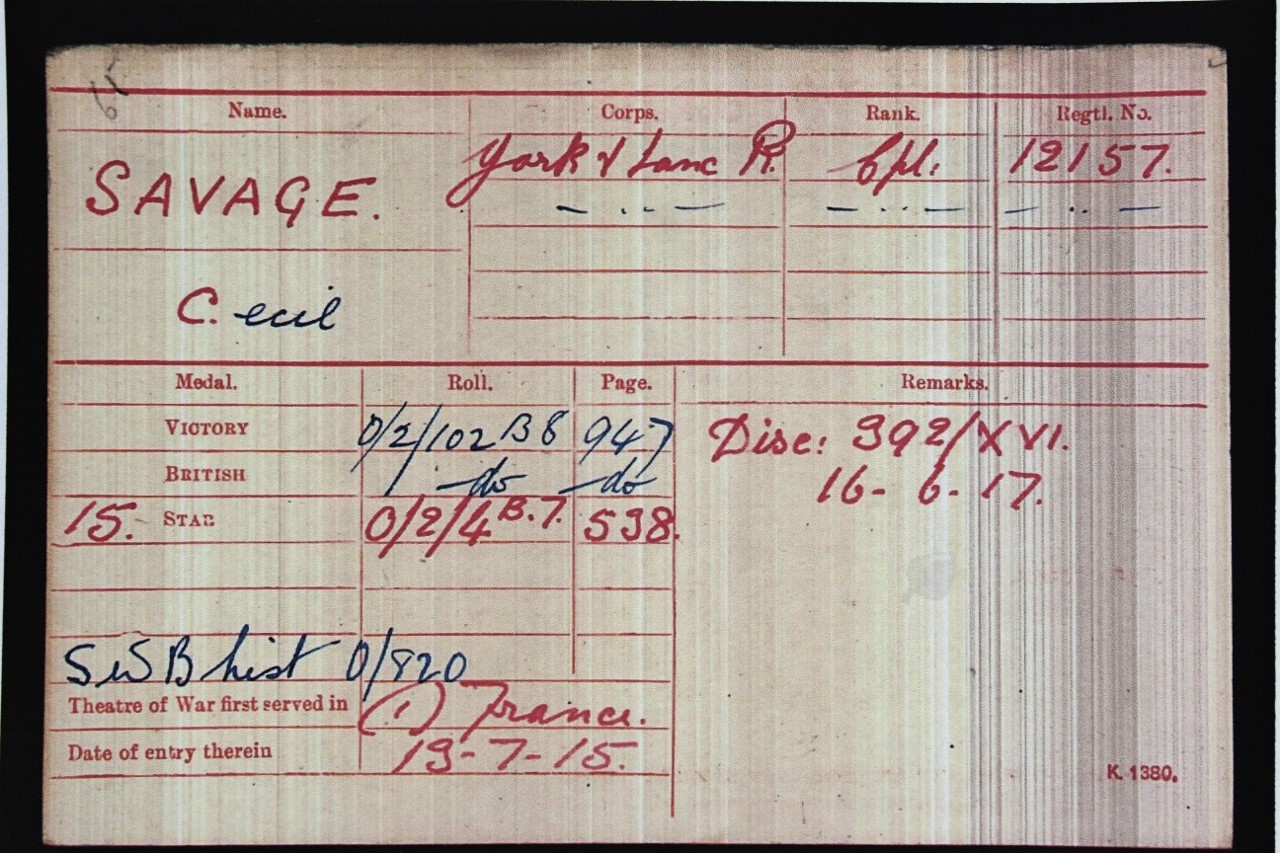 65
Name. Corps. Rank. Regtl. No.
SAVAGE. York & Lanc R. Cpl. 12157.
— .. — — .. — — .. —
C. ecil
Medal. Roll. Page. Remarks.
VICTORY 0/2/102 B8 947 Disc: 392/XVI.
BRITISH —do —do 16- 6- 17.
15. STAR 0/2/4 B.7. 538.
SWB list 0/820
Theatre of War first served in (1) France.
Date of entry therein 13-7-15.
K. 1380.